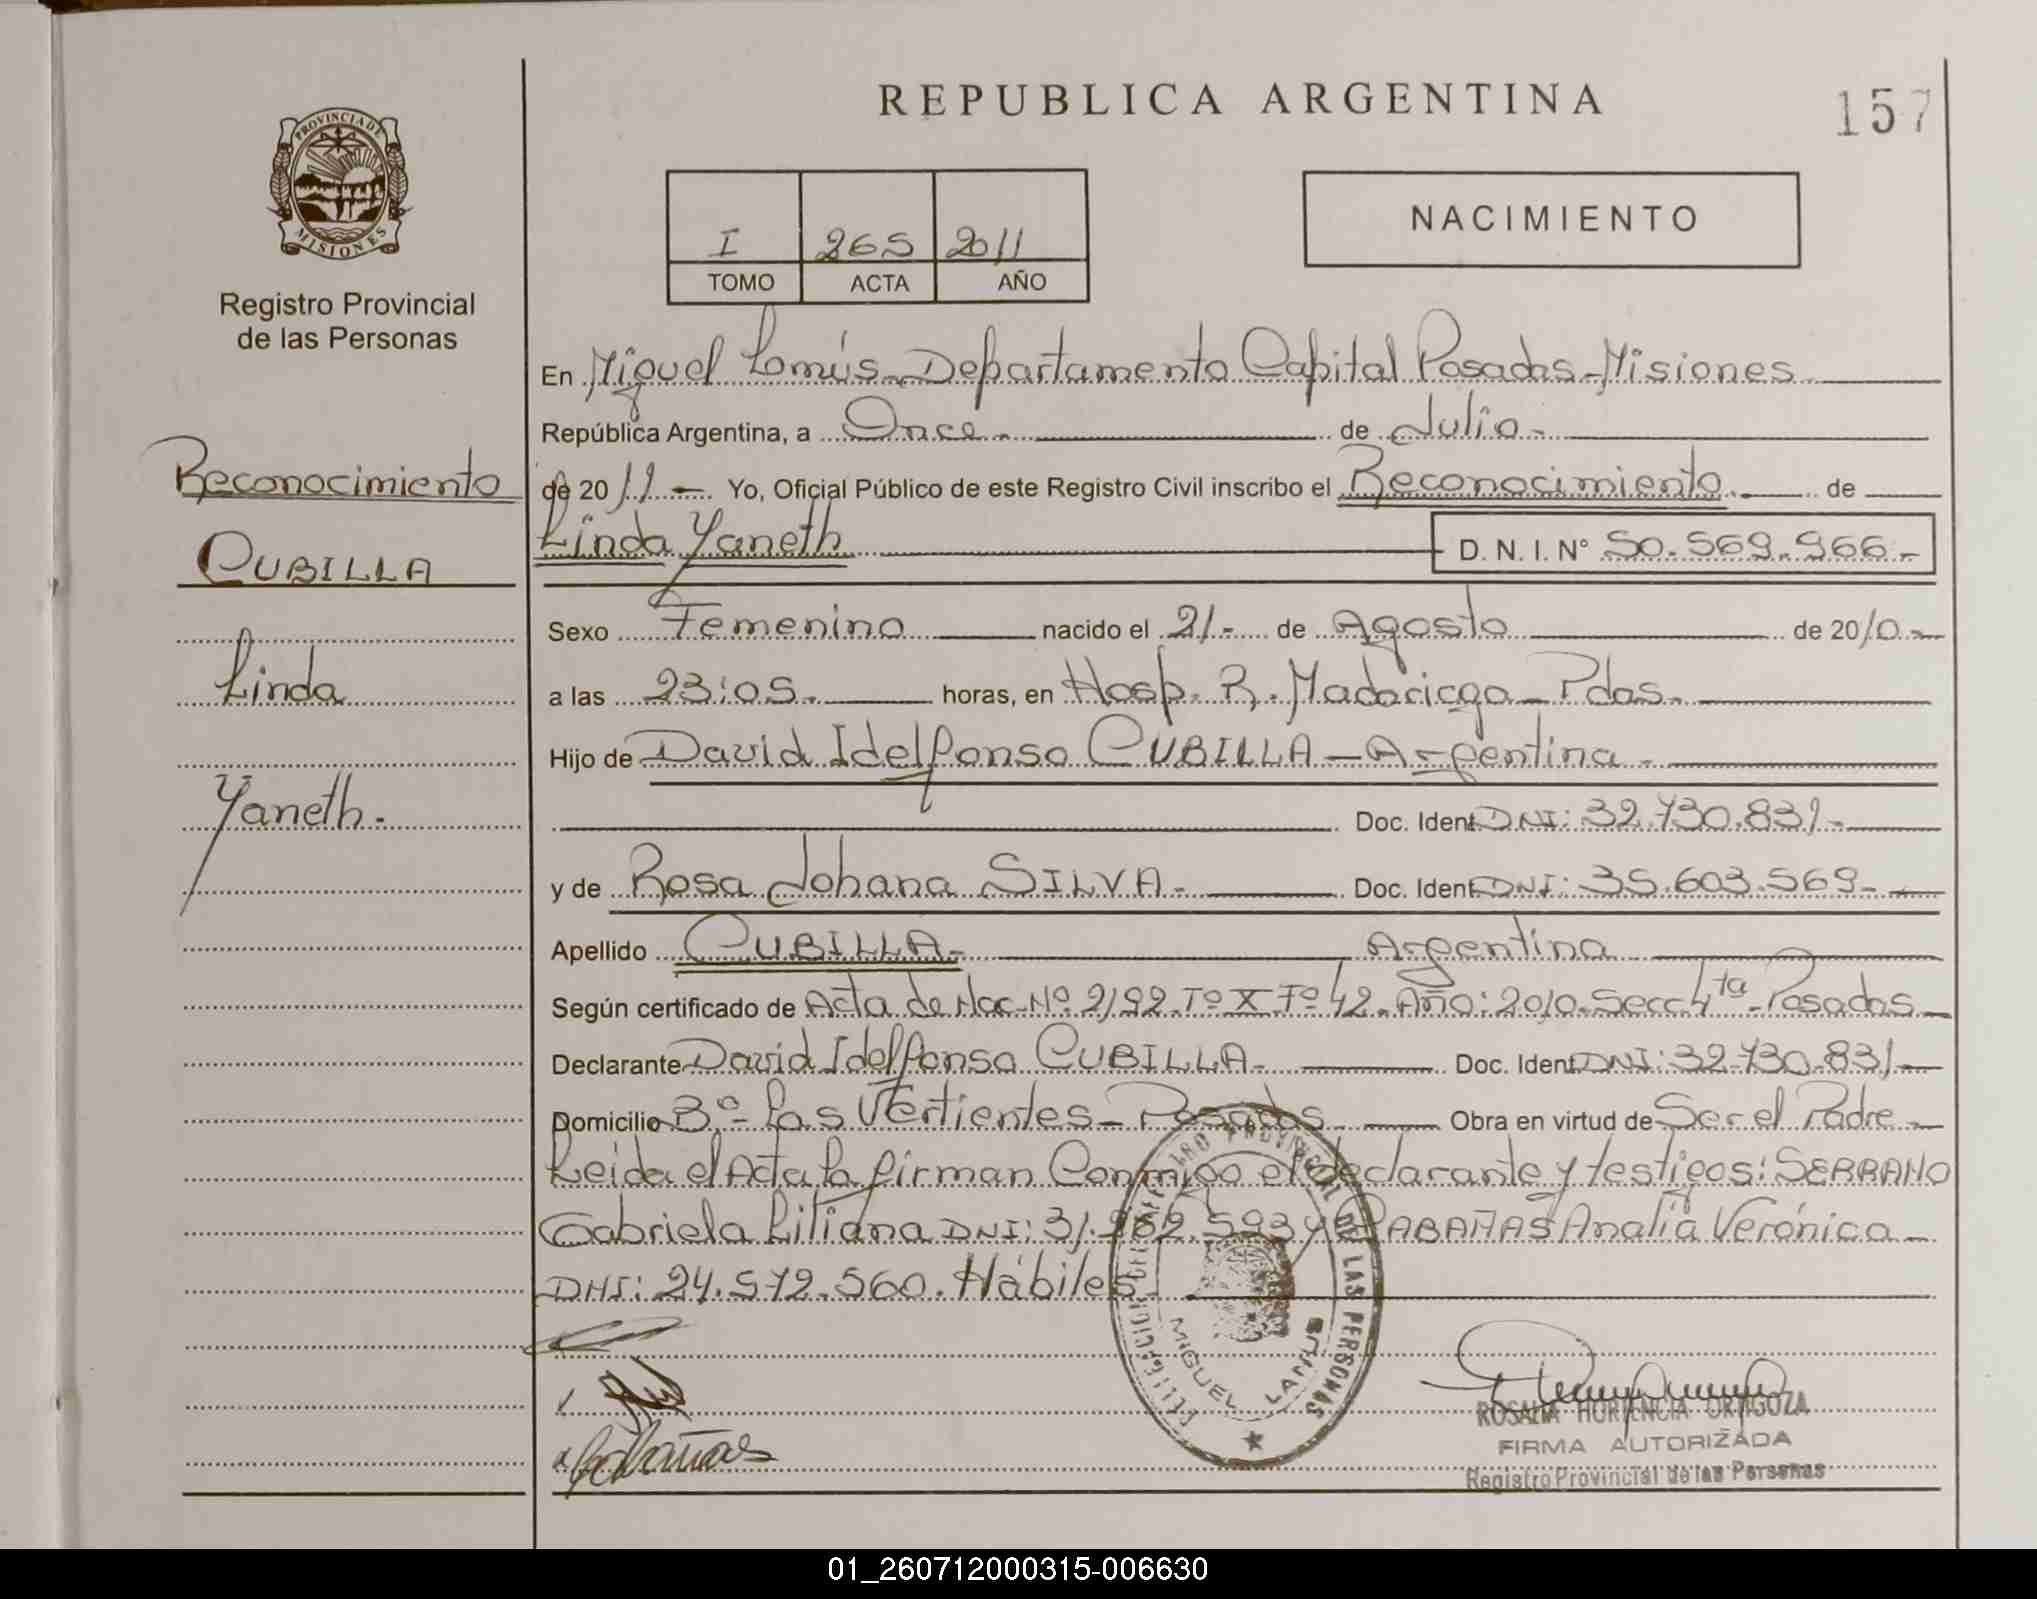 REPUBLICA ARGENTINA
157
PROVINCIA DE MISIONES
Registro Provincial
de las Personas
I 265 2011
TOMO ACTA AÑO
NACIMIENTO
Reconocimiento
CUBILLA
Linda
Yaneth.
En Miguel Lanús - Departamento Capital Posadas - Misiones
República Argentina, a Once - de Julio -
de 2011 - Yo, Oficial Público de este Registro Civil inscribo el Reconocimiento de
Linda Yaneth D. N. I. N° 50.569.966.-
Sexo Femenino nacido el 21.- de Agosto de 2010.-
a las 23:05.- horas, en Hosp. R. Madariaga - Pdas.
Hijo de David Idelfonso CUBILLA - Argentina.
Doc. Ident DNI: 32.730.831.-
y de Rosa Johana SILVA.- Doc. Ident DNI: 35.603.569.-
Apellido CUBILLA.- Argentina
Según certificado de Acta de Nac. Nº 2192. Tº X Fº 42. Año: 2010. Secc. 4ta - Posadas
Declarante David Idelfonso CUBILLA.- Doc. Ident DNI: 32.730.831.-
Domicilio Bº - Las Vertientes - Posadas Obra en virtud de Ser el Padre
Leida el Acta la firman Conmigo el declarante y testigos: SERRANO
Gabriela Liliana DNI: 31. .593 y CABAÑAS Analia Verónica
DNI: 24.572.560. Hábiles
PROVINCIAL DE LAS PERSONAS
MIGUEL LANUS
Cabañas
ROSALIA HORTENCIA ORTIGOZA
FIRMA AUTORIZADA
Registro Provincial de las Personas
01_260712000315-006630